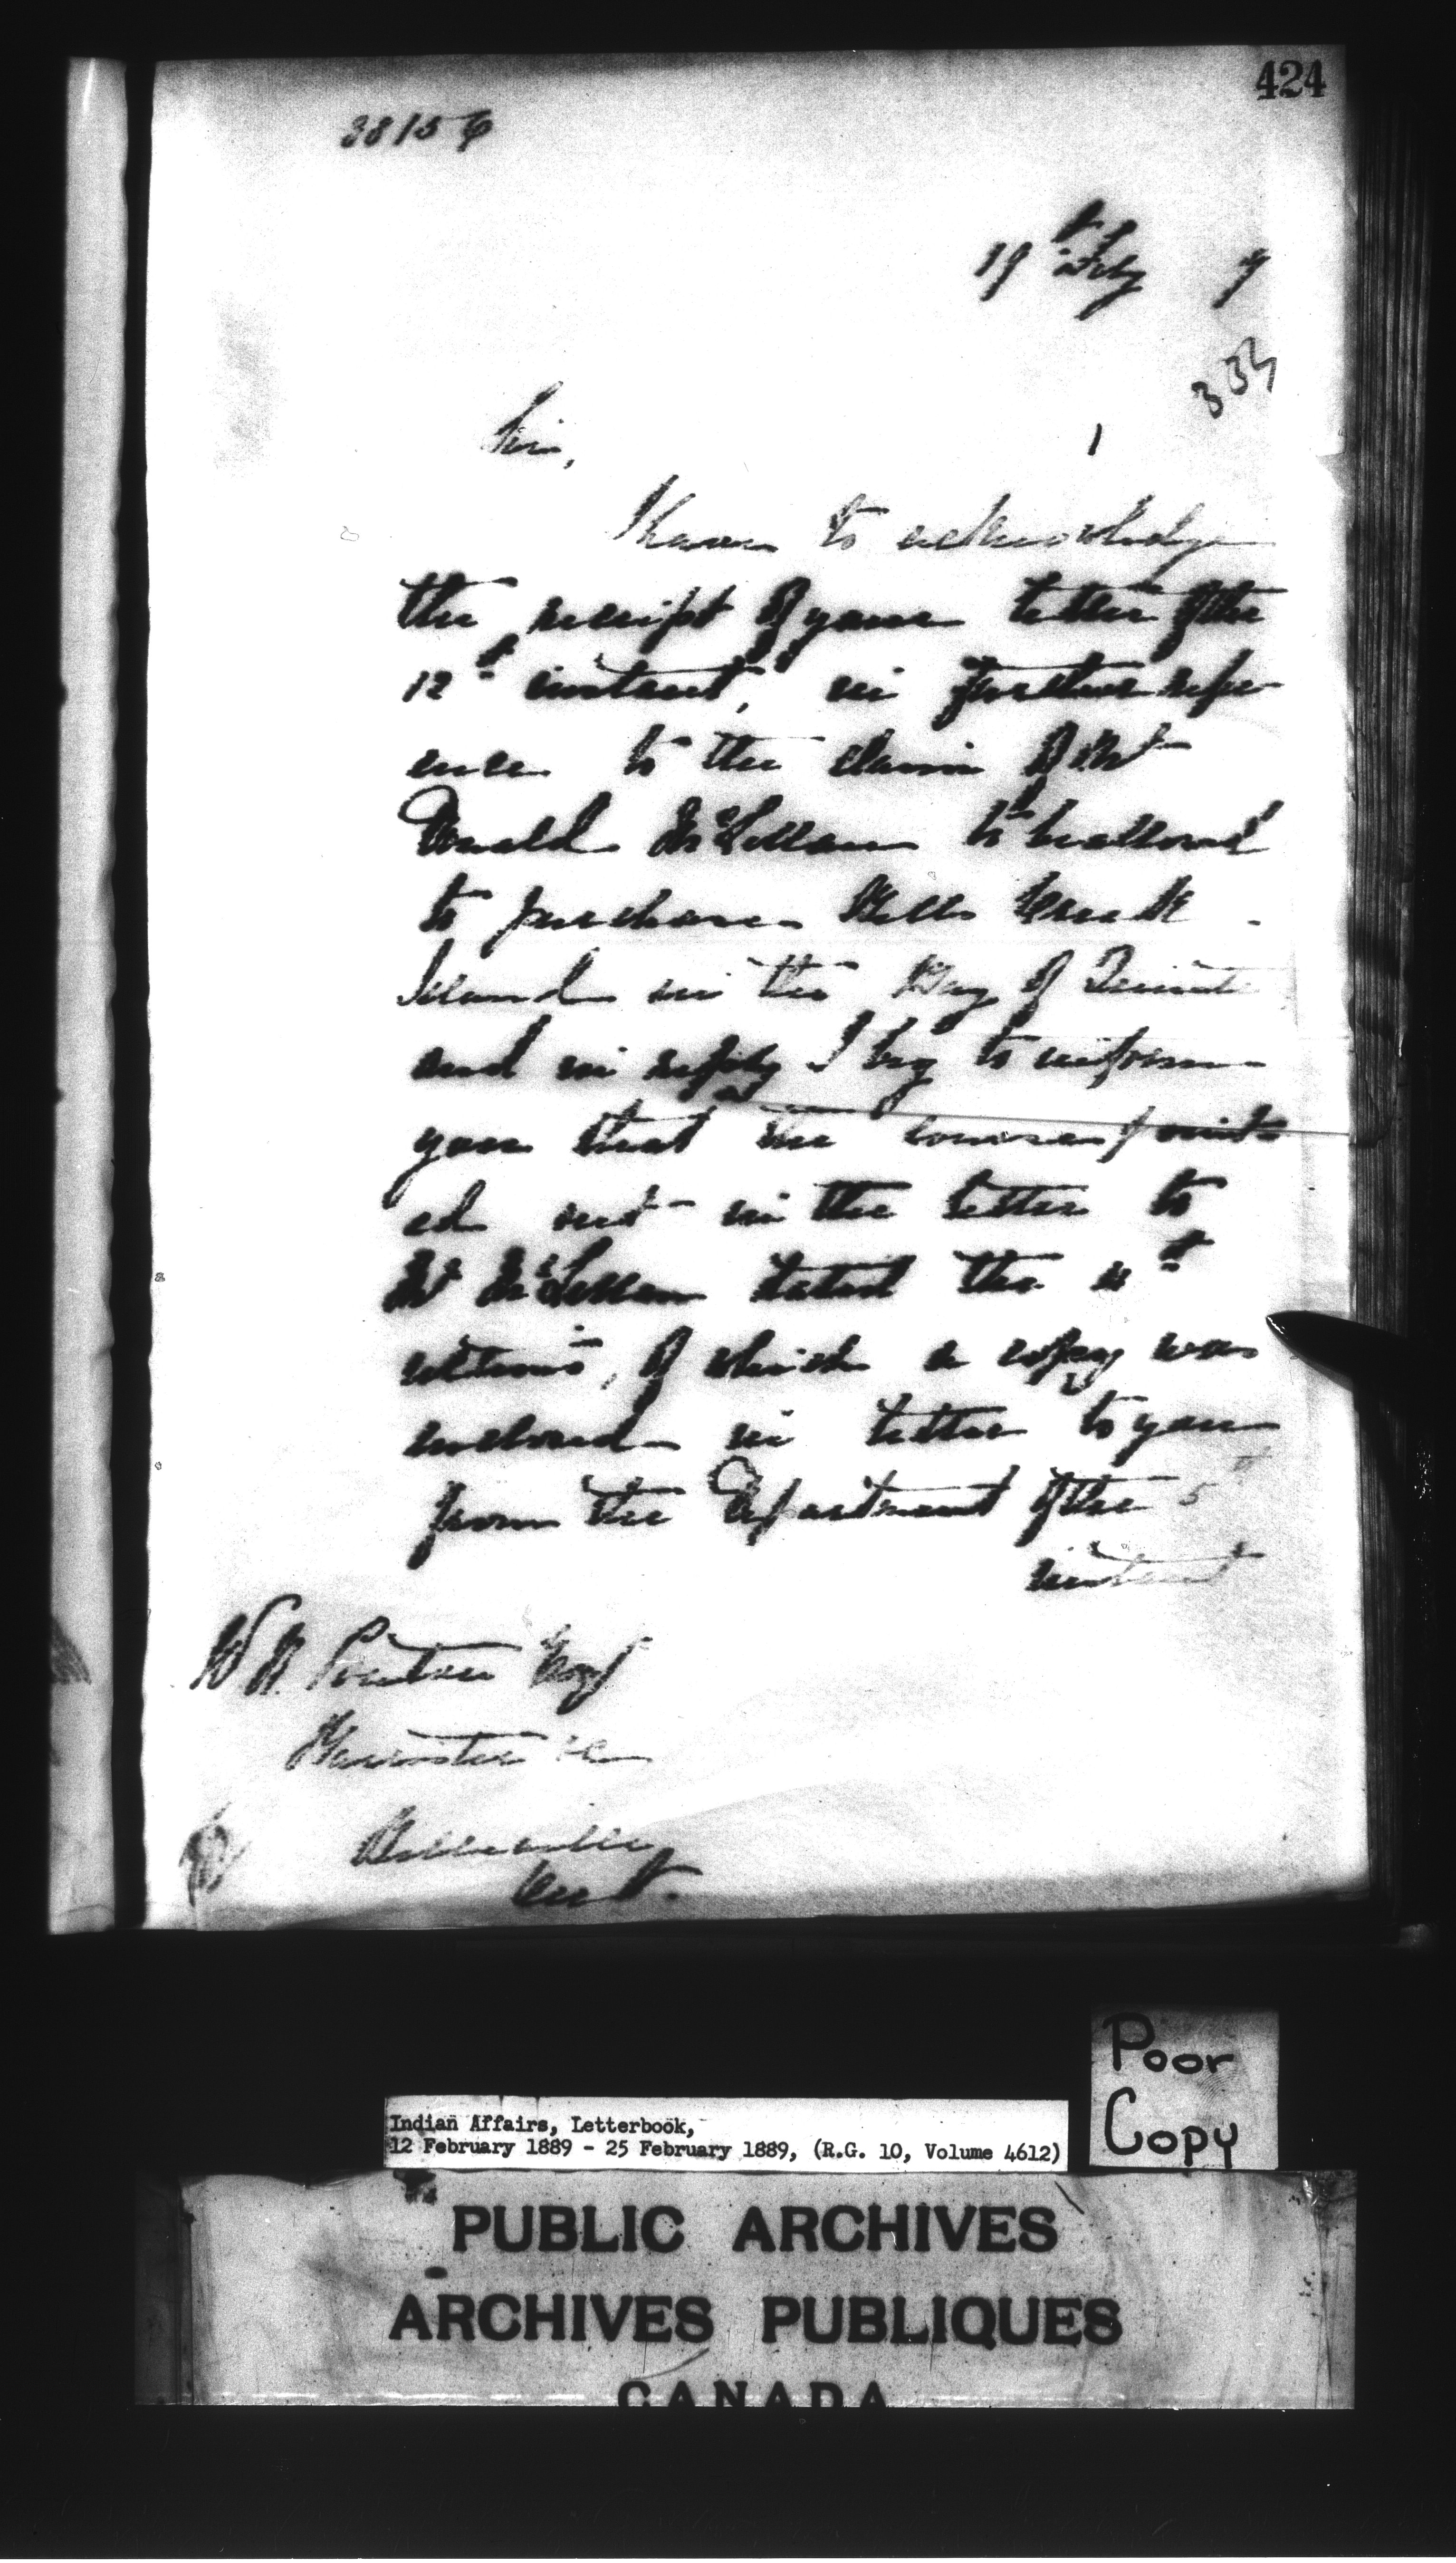 424
38156
19th Feby 9
334
Sir,
I have to acknowledge
the receipt of your letter of the
12th instant, in further refer-
ence to the claim of Mr
Donald McLellan to be allowed
to purchase Creek
Island in the Bay of Quinté
and in reply I beg to inform
you that the course point
ed out in the letter to
Mr McLellan dated the
ultimo, of which a copy was
enclosed in letter to you
from the Department of the 5th
instant
W. R. Esq
Barrister &c
Belleville
Ont.
Poor
Copy
Indian Affairs, Letterbook,
12 February 1889 - 25 February 1889, (R.G. 10, Volume 4612)
PUBLIC ARCHIVES
ARCHIVES PUBLIQUES
CANADA